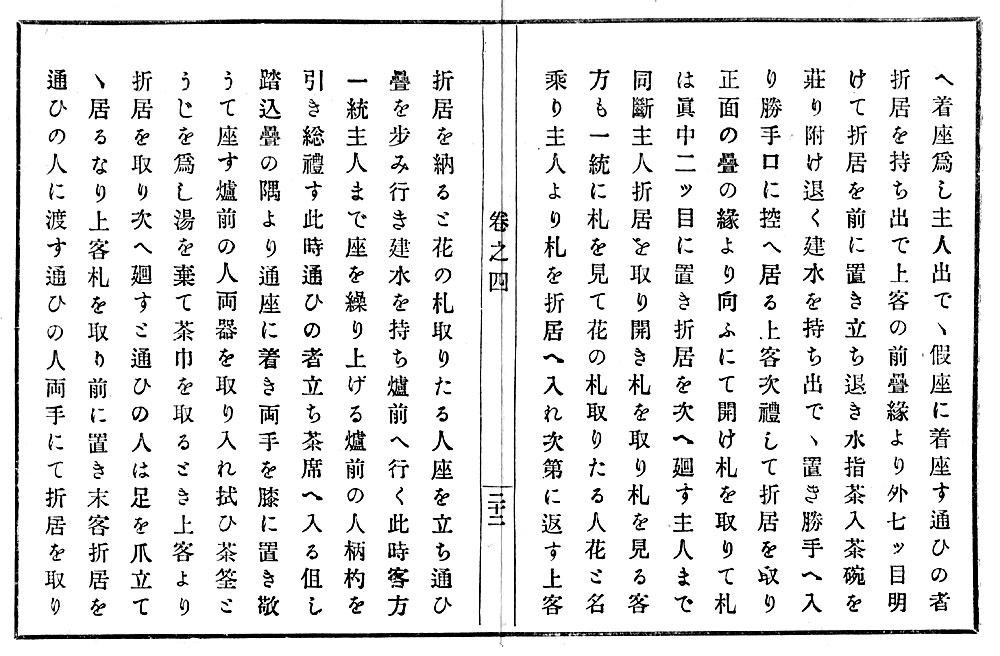 へ着座爲し主人出でヽ假座に着座す通ひの者
折居を持ち出で上客の前疊緣より外七ッ目明
けて折居を前に置き立ち退き水指茶入茶碗を
莊り附け退く建水を持ち出でヽ置き勝手へ入
り勝手口に控へ居る上客次禮して折居を取り
正面の疊の緣より向ふにて開け札を取りて札
は眞中二ッ目に置き折居を次へ廻す主人まで
同斷主人折居を取り開き札を取り札を見る客
方も一統に札を見て花の札取りたる人花と名
乘り主人より札を折居へ入れ次第に返す上客
卷之四
三十二
折居を納ると花の札取りたる人座を立ち通ひ
疊を步み行き建水を持ち爐前へ行く此時客方
一統主人まで座を繰り上げる爐前の人柄杓を
引き総禮す此時通ひの者立ち茶席へ入る但し
踏込疊の隅より通座に着き両手を膝に置き敬
うて座す爐前の人両器を取り入れ拭ひ茶筌と
うじを爲し湯を棄て茶巾を取るとき上客より
折居を取り次へ廻すと通ひの人は足を爪立て
ヽ居るなり上客札を取り前に置き末客折居を
通ひの人に渡す通ひの人両手にて折居を取り